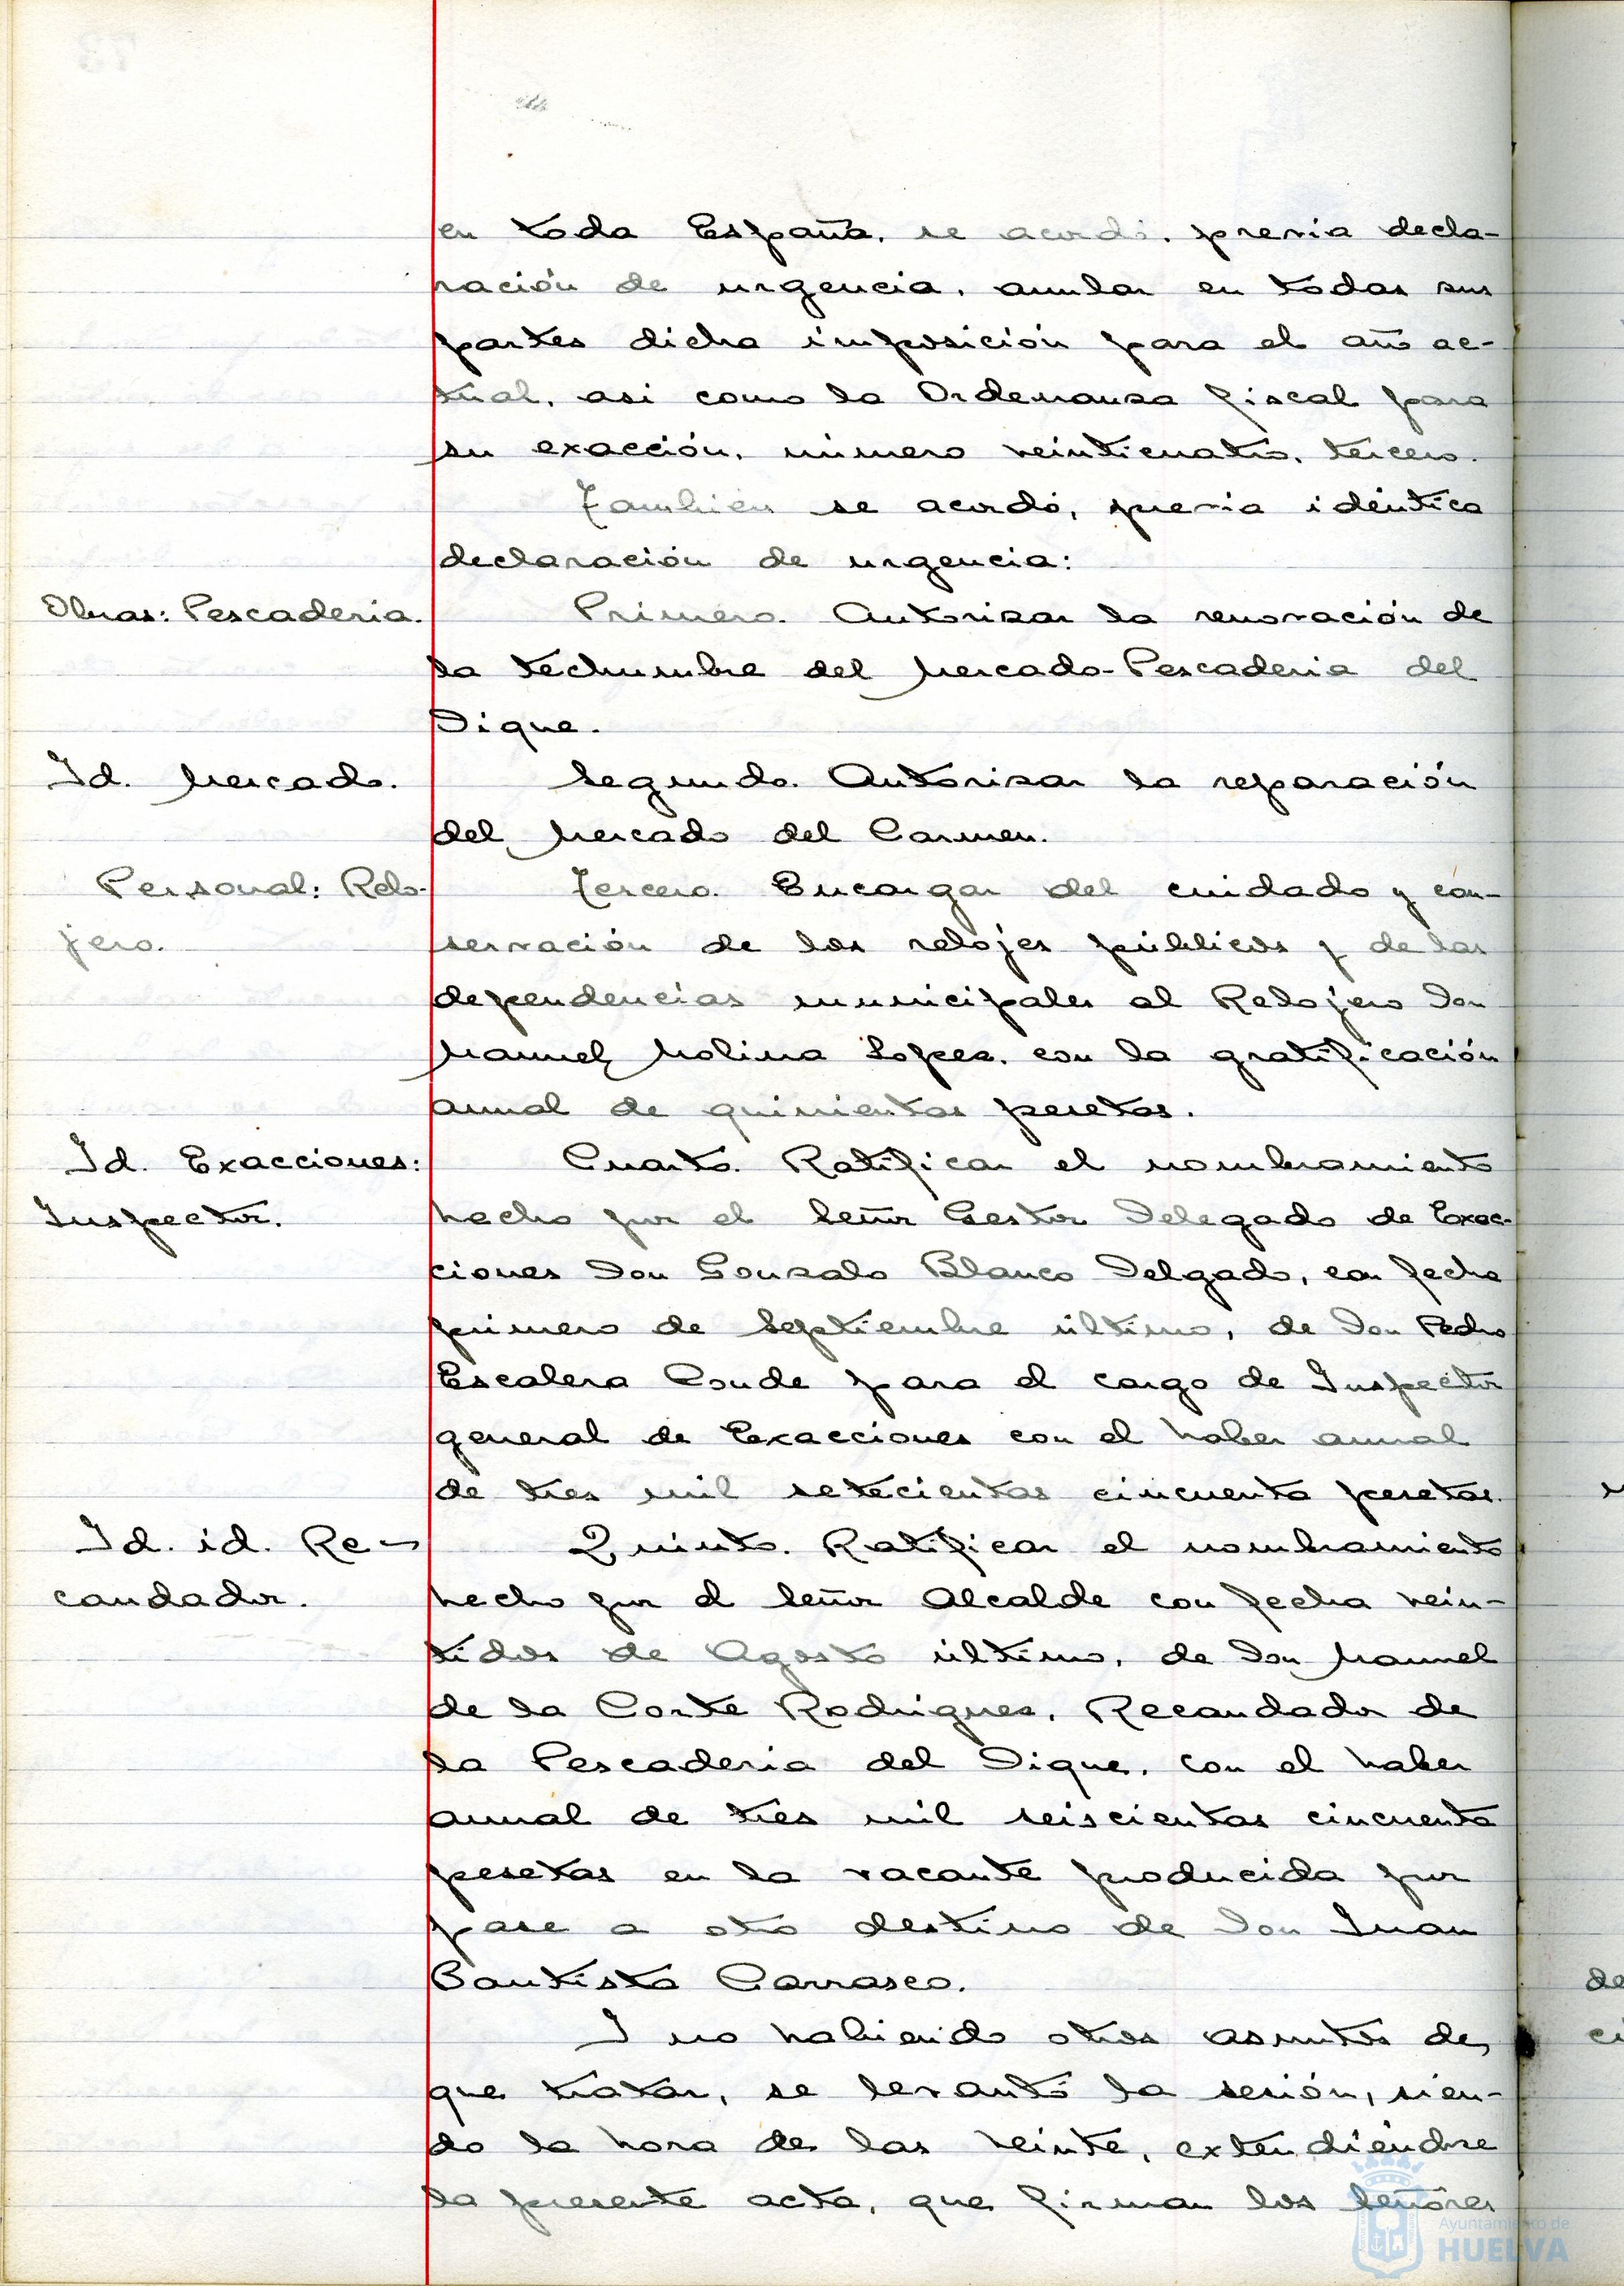 en toda España, se acordó, previa decla-
ración de urgencia, anular en todas sus
partes dicha imposición para el año ac-
tual, asi como la Ordenanza fiscal para
su exacción, número veinticuatro, tercero.
También se acordó, previa idéntica
declaración de urgencia:
Obras: Pescaderia.
Primero. Autorizar la renovación de
la techumbre del Mercado-Pescaderia del
Dique.
Id. Mercado.
Segundo. Autorizar la reparación
del Mercado del Carmen.
Personal: Relo-
jero.
Tercero. Encargar del cuidado y con-
servación de los relojes públicos y de las
dependencias municipales al Relojero Don
Manuel Molina Lopez, con la gratificación
anual de quinientas pesetas.
Id. Exacciones:
Inspector.
Cuarto. Ratificar el nombramiento
hecho por el Señor Gestor Delegado de Exac-
ciones Don Gonzalo Blanco Delgado, con fecha
primero de Septiembre último, de Don Pedro
Escalera Conde para el cargo de Inspector
general de Exacciones con el haber anual
de tres mil setecientas cincuenta pesetas.
Id. id. Re-
caudador.
Quinto. Ratificar el nombramiento
hecho por el Señor Alcalde con fecha vein-
tidos de Agosto último, de Don Manuel
de la Corte Rodriguez, Recaudador de
la Pescaderia del Dique, con el haber
anual de tres mil seiscientas cincuenta
pesetas en la vacante producida por
pase a otro destino de Don Juan
Bautista Carrasco.
Y no habiendo otros asuntos de
que tratar, se levantó la sesión, sien-
do la hora de las veinte, extendiéndose
la presente acta, que firman los Señores
Ayuntamiento de
HUELVA